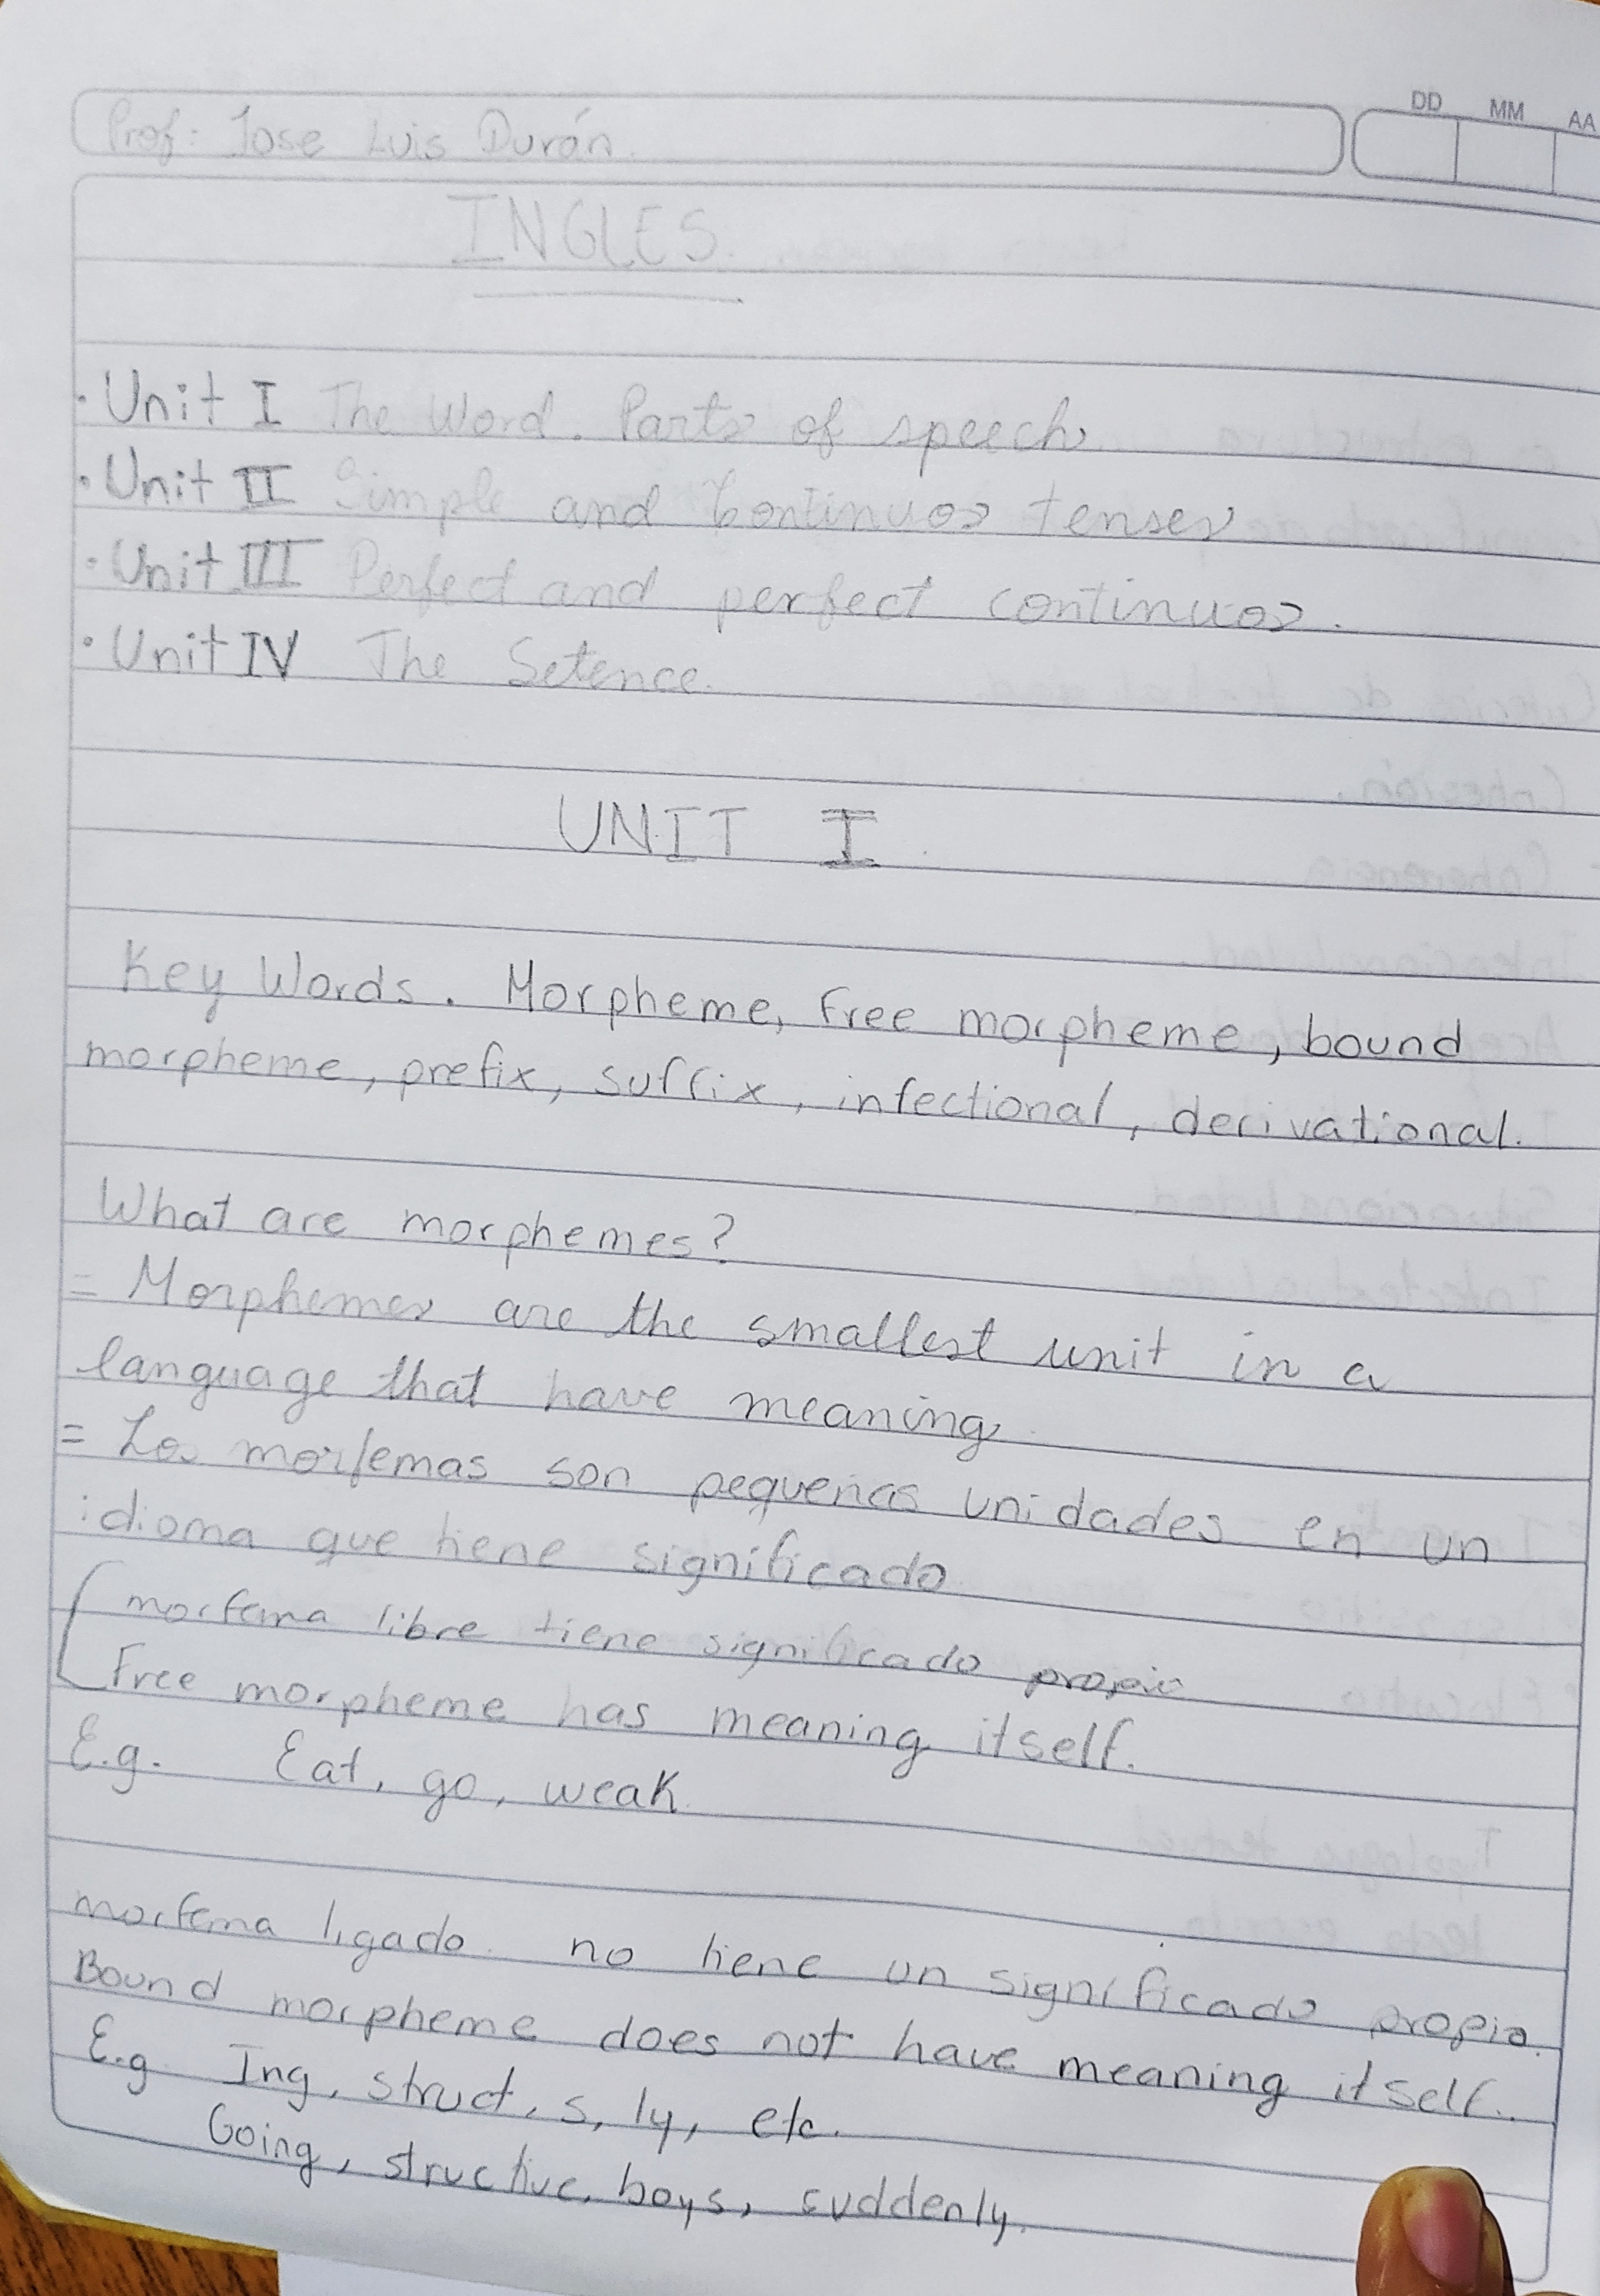 DD MM AA
Prof: Jose Luis Durán.
INGLES.
· Unit I The Word. Parts of speech
· Unit II Simple and continuos tenses
· Unit III Perfect and perfect continuos.
· Unit IV The Setence.
UNIT I
Key Words. Morpheme, free morpheme, bound
morpheme, prefix, suffix, infectional, derivational.
What are morphemes?
= Morphemes are the smallest unit in a
language that have meaning.
= Los morfemas son pequeñas unidades en un
idioma que tiene significado
morfema libre tiene significado propio
Free morpheme has meaning itself.
E.g. Eat, go, weak
morfema ligado no tiene un significado propio.
Bound morpheme does not have meaning itself.
E.g Ing, struct, s, ly, etc.
Going, structive, boys, suddenly.